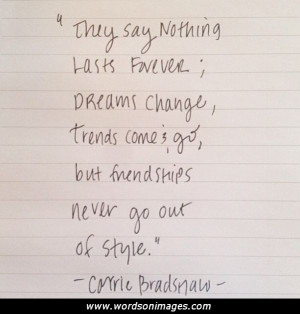 "They say Nothing
Lasts Forever;
Dreams change,
trends come & go,
but friendships
never go out
of style."
- Carrie Bradshaw -
www.wordsonimages.com